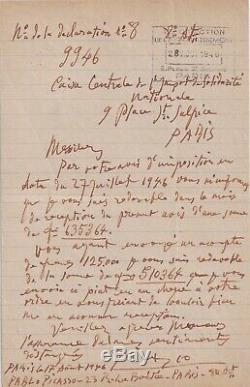 No de la declaration No 8
9946
28 1946
PARIS
Caisse Centrale de l'impot de Solidarité
Nationale
9 Place St Sulpice
PARIS
Messieurs
Par votre avis d'imposition en
date du 27 juillet 1946 vous
que je vous suis redevable dans le mois
de reception du present avis d'une somme
de 63536f.
Vous ayant envoyé un acompte
de 12500 je vous suis redevable
de la somme de 51036f que je vous
envoie ci joint en un cheque à votre
ordre en vous priant de vouloir bien
me en accuser reception.
Veuillez agréer Messieurs
l'assurance de mes sentiments
distingués
PARIS le 17 Aout 1946
PABLO Picasso - 23 Rue La Boëtie - PARIS - 8